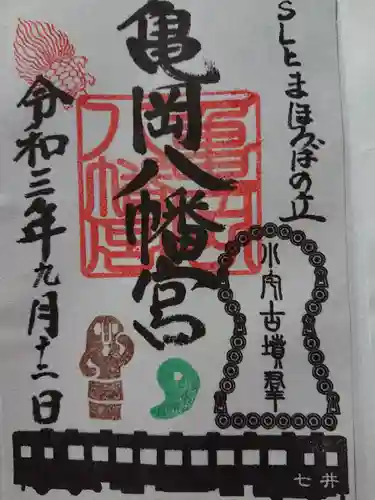 SLとまほろばの丘
亀岡八幡宮
小宅古墳群
令和三年九月十二日
七井